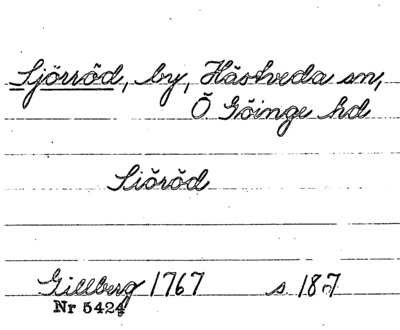 Sjörröd, by, Hästveda sn,
Ö Göinge hd
Siöröd
Gillberg 1767 s 187
Nr 5424